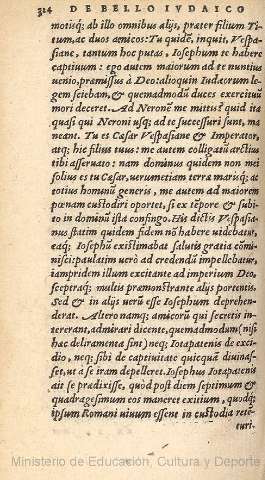 314 DE BELLO IVDAICO
motisq; ab illo omnibus alijs, præter filium Ti-
tum, ac duos amicos: Tu quidē, inquit, Vespa-
siane, tantum hoc putas, Iosephum te habere
captiuum: ego autem maiorum ad te nuntius
uenio, præmissus à Deo: alioquin Iudæorum le-
gem sciebam, & quemadmodū duces exercituū
mori deceret. Ad Neronē me mittis? quid ita
quasi qui Neroni usq; ad te successuri sunt, ma
neant. Tu es Cæsar Vespasiane & Imperator,
atq; hic filius tuus: me autem colligatū arctius
tibi asseruato: nam dominus quidem non mei
solius es tu Cæsar, uerumetiam terra mariq; ac
totius humani generis, me autem ad maiorem
pœnam custodiri oportet, si ex tēpore & subi-
to in dominū ista confingo. His dictis Vespasia-
nus statim quidem fidem nō habere uidebatur,
eaq; Iosephū existimabat salutis gratia cōmi-
nisci: paulatim uerò ad credendū impellebatur,
iampridem illum excitante ad imperium Deo,
sceptraq; multis præmonstrante alijs portentis.
Sed & in alijs uerū esse Iosephum deprehen-
derat. Altero namq; amicorū qui secretis in-
tererant, admirari dicente, quemadmodum (nisi
hæc deliramenta sint) neq; Iotapatenis de exci-
dio, neq; sibi de captiuitate quicquā diuinas-
set, ut à se iram depelleret. Iosephus Iotapatenis
ait se prædixisse, quòd post diem septimum &
quadragesimum eos maneret exitium, quodq;
ipsum Romani uiuum essent in custodia retē-
turi.
Ministerio de Educación, Cultura y Deporte